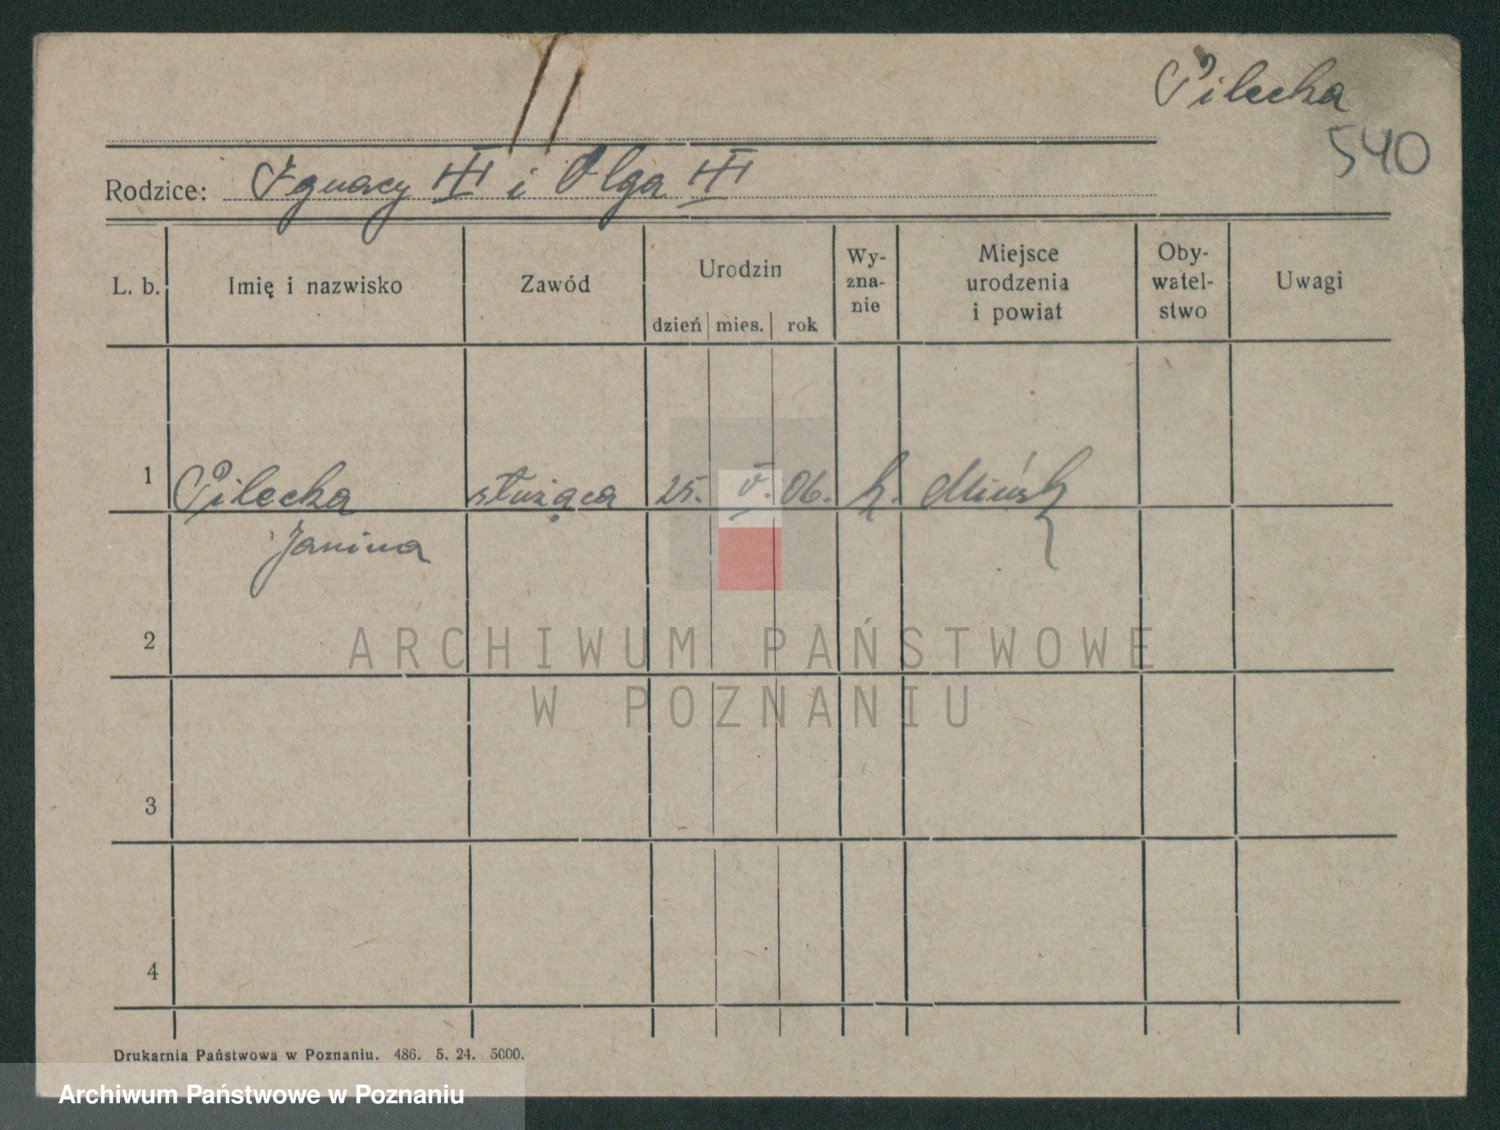 Pilecka
540
Rodzice: Ignacy i Olga
L. b. Imię i nazwisko Zawód Urodzin dzień mies. rok Wy-zna-nie Miejsce urodzenia i powiat Oby-watel-stwo Uwagi
1 Pilecka służąca 25. V. 06. k. Mińsk
Janina
2
ARCHIWUM PAŃSTWOWE
W POZNANIU
3
4
Drukarnia Państwowa w Poznaniu. 486. 5. 24. 5000.
Archiwum Państwowe w Poznaniu